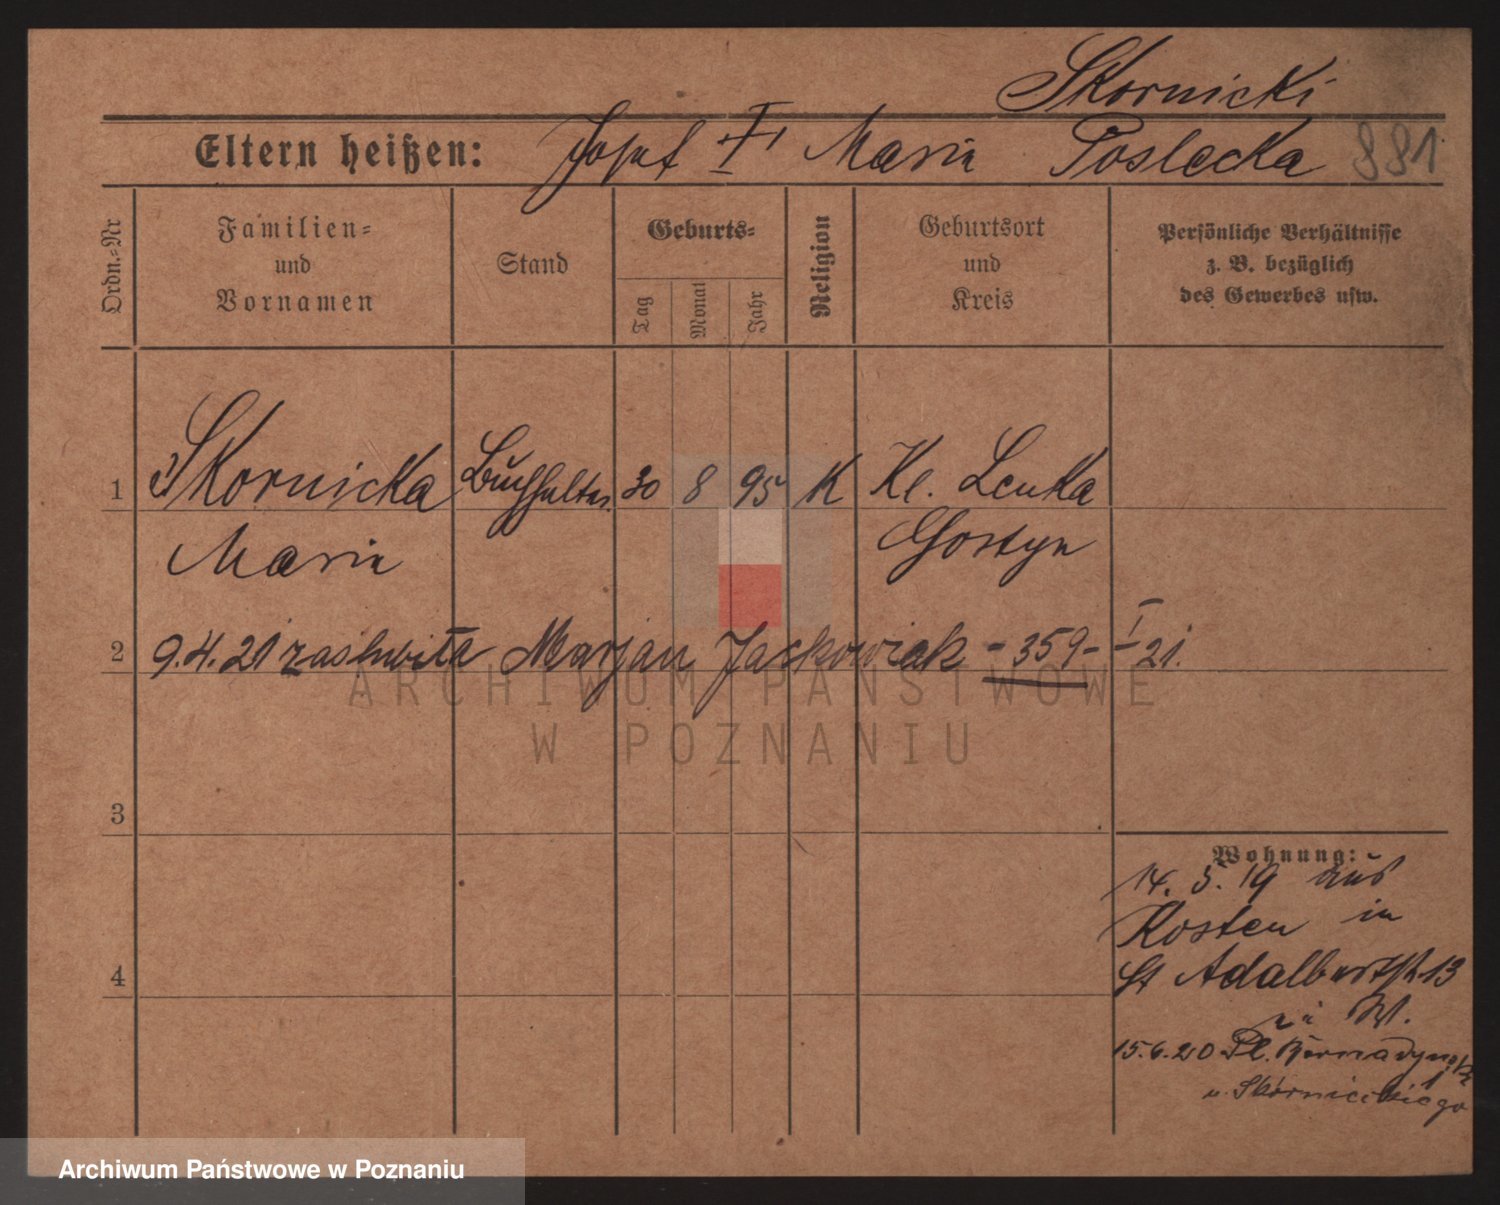 Skornicki
Eltern heißen: Josef + Maria Poslecka 881
Ordn.-Nr
Familien- und Vornamen
Stand
Geburts-
Tag
Monat
Jahr
Religion
Geburtsort und Kreis
Persönliche Verhältnisse
z. B. bezüglich
des Gewerbes usw.
1 Skornicka Buchhalter. 30 8 95 K Kl. Lenka
Maria Gostyn
2 9.4.21 zaślubiła Marjan Jackowiak - 359 - I 21.
3
4
Wohnung:
14. 5. 19 aus
Kosten in
St Adalbertstr 13
15.6.20 Pl. Bernadyński
1
u. Skórnickiego
ARCHIWUM PAŃSTWOWE
W POZNANIU
Archiwum Państwowe w Poznaniu